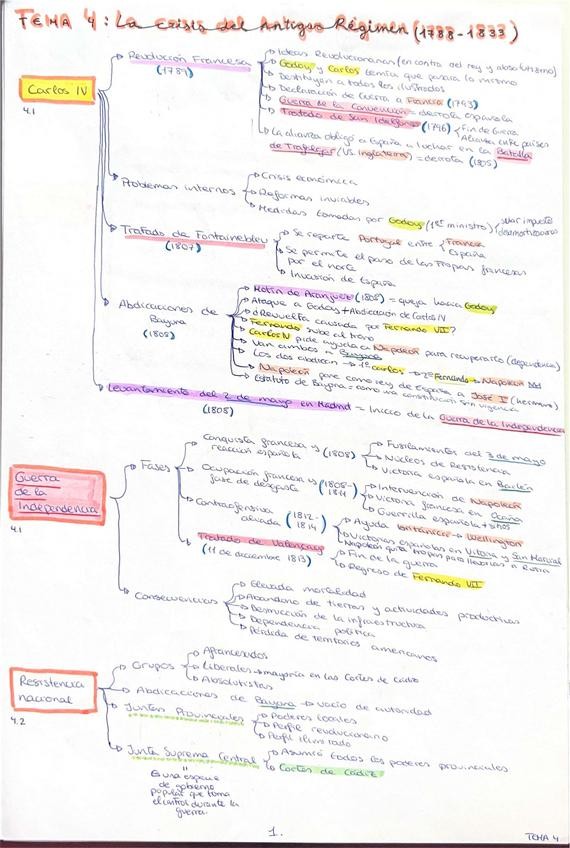 TEMA 4: La crisis del Antiguo Régimen (1788-1833)
Carlos IV
4.1
Revolución Francesa
(1789)
Ideas Revolucionarias (en contra del rey y absolutismo)
Godoy y Carlos temía que pasara lo mismo
Destituyen a todos los ilustrados
Declaración de Guerra a Francia (1793)
Guerra de la Convención = derrota española
Tratado de San Ildefonso (1796)
Fin de Guerra
Alianza entre países
La alianza obligó a España a luchar en la Batalla
de Trafalgar (VS. Inglaterra) = derrota (1805)
Problemas internos
Crisis económica
Reformas inviables
Medidas tomadas por Godoy (1er ministro)
Tratado de Fontainebleu
(1807)
Se reparte Portugal entre
Francia
España
Se permite el paso de las tropas francesas
por el norte
Invasión de España
Abdicaciones de
Bayona
(1808)
Motín de Aranjuez (1808) = queja hacia Godoy
Ataque a Godoy + Abdicación de Carlos IV
¿Revuelta causada por Fernando VII?
Fernando sube al trono
Carlos IV pide ayuda a Napoleón para recuperarlo (dependencia)
Van ambos a Bayona
Los dos abdican → 1º Carlos → 2º Fernando → Napoleón
Napoleón pone como rey de España a José I (hermano)
Estatuto de Bayona = como una constitución sin vigencia
Levantamiento del 2 de mayo en Madrid = Inicio de la Guerra de la Independencia
(1808)
Guerra
de la
Independencia
4.1
Fases
Conquista francesa y
reacción española
(1808)
Fusilamientos del 3 de mayo
Núcleos de Resistencia
Victoria española en Bailén
Ocupación francesa y
fase de desgaste
(1808-
1811
Intervención de Napoleón
Victoria francesa en Ocaña
Guerrilla española
Contraofensiva
aliada
(1812-
1814)
Ayuda británica → Wellington
Victorias españolas en Vitoria y San Marcial
Napoleón quita tropas para llevarlas a Rusia
Tratado de Valençay
(11 de diciembre 1813)
Fin de la guerra
Regreso de Fernando VII
Consecuencias
Elevada mortalidad
Abandono de tierras y actividades productivas
Destrucción de la infraestructura
Dependencia política
Pérdida de territorios americanos
Resistencia
nacional
4.2
Grupos
Afrancesados
Liberales → mayoría en las Cortes de Cádiz
Absolutistas
Abdicaciones de Bayona → vacío de autoridad
Juntas Provinciales
Poderes locales
Perfil revolucionario
Perfil ilustrado
Junta Suprema Central
Asumió todos los poderes provinciales
Cortes de Cádiz
=
Es una especie
de gobierno
popular que toma
el control durante la
guerra.
1.
TEMA 4